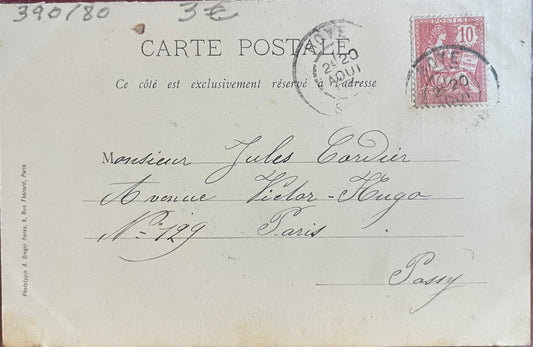 390/80 3€
CARTE POSTALE
Ce côté est exclusivement réservé à l'adresse
Monsieur Jules Cordier
Avenue Victor-Hugo
No 129 Paris
Passy
POSTES
10
20
AOUT
20
AOUT
Phototypie A. Breger Frères, 9, Rue Thénard, Paris